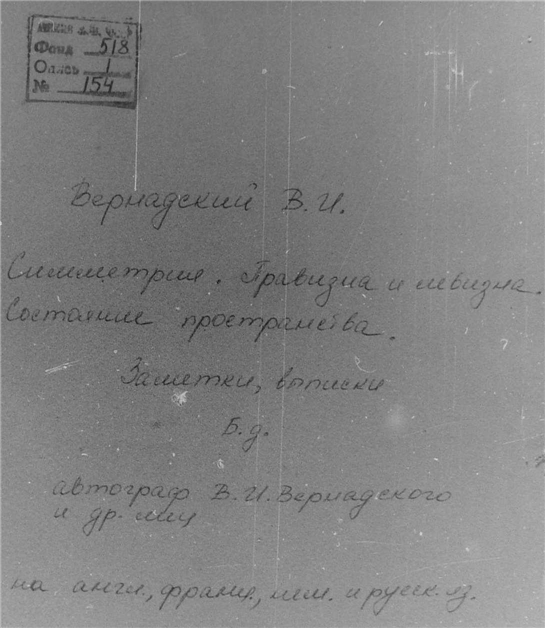 Фонд 518
Опись 1
№ 154
Вернадский В.И.
Симметрия. Правизна и левизна.
Состояние пространства.
Заметки, выписки
Б.д.
автограф В.И. Вернадского
и др. лиц
на англ., франц., нем. и русск. яз.